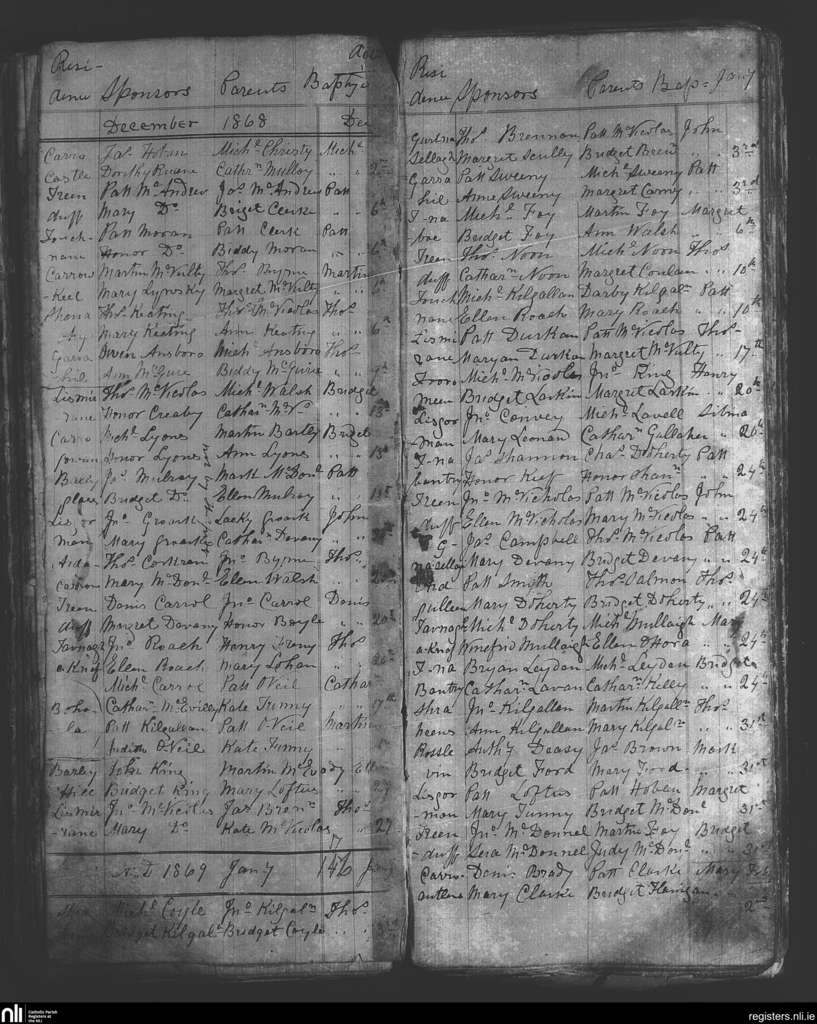 Resi-
dence Sponsors Parents Baptyzd
December 1868 Dec
Carra Jas. Hoban Michl. Christy Michl
Castle Dorothy Ruane Cathrn Mulloy " " 2nd
Treen Patt McAndrew Jas. McAndrew Patt
duff Mary Do. Briget Clerke " " 6th
Touch- Patt Moran Patt Clerk Patt
nane Honor Do. Biddy Moran " " 6th
Carrow Martin McNulty Thos. Byrne Martin
-Keel Mary Lynsky Margret McNulty " "
Shona Thos. Keating Thos. McNicolas Thos.
Mary Keating Ann Keating " " 6th
Garra Owen Ansboro Michl. Ansboro Thos.
hil Ann McGuire Biddy McGuire " " 9th
Lismir Thos. McNicolas Michl Walsh Bridget
rane Honor Creaby Catharn McN. " " 13th
Carro Michl. Lyons Martin Barley Bridet
gowan Honor Lyons Ann Lyons " " 13th
Barly Jas. Mulroy Mark McDonl. Patt
place Bridget Do. Ellen Mulroy " " 13th
Lisgor Jno. Groark Lacky Groark John
man Mary Groark Catharn Devany " "
Arda- Thos. Corkran Jno. Byrne Thos.
carron Mary McDonl. Ellen Walsh " " 20th
Treen Denis Carrol Jno. Carrol Denis
duff Margret Devany Honor Boyle " " 20th
Tavnagh Jno. Roach Henry Irony Thos.
a-Knig Ellen Roach Mary Lohan " " 20th
Michl. Carrol Patt ONeil Cathar
Boho- Catharn McEvilly Kate Funny " " 17th
la Patt Kilgallan Patt ONeil Martin
Judith ONeil Kate Funny " "
Barley John King Martin McEvady Ell
Hill Bridget King Mary Loftus " " 27
Lismir Jno. McNicolas Jas. Bren Thos.
-rane Mary Do. Kate McNicolas " 27
A.D 1869 Jany 146 Jany
Michl. Coyle Jno. Kilgaln Thos.
Bridget Kilgal- Bridget Coyle " "
Resi
dence Sponsors Parents Bap= Jany
Gurtna Thos. Brennan Patt McNicolas John
Sellagh Margret Scully Bridget Bren " " 3rd
Garra Patt Sweeny Michl. Sweeny Patt
hil Anne Sweeny Margret Carny " " 3rd
T-na Michl. Foy Martin Foy Margret
boe Bridget Foy Ann Walsh " " 6th
Treen Thos. Noon Michl. Noon Thos
duff Catharn Noon Margret Conlan " " 10th
Touch Michl. Kilgallan Darby Kilgal- Patt
nane Ellen Roach Mary Roach " " 10th
Lismi Patt Durkan Patt McNicolas Thos-
rane Maryan Durkan Margret McNulty " 17th
Michl. McNicolas Jno. Ring Henry
meen Bridget Larkin Margret Larkin " 20th
Lisgor Jno. Convey Michl. Lavell
man Mary Leonan Catharn Gallaher " 20th
T-na Jas. Shannon Chas. Doherty Patt
bantry Honor Keef Honor Shann " " 24th
Treen Jno. McNicholas Patt McNicolas John
duff Ellen McNicholas Mary McNicolas - " 24th
G- Jas. Campbell Thos. McNicolas Patt
nagellagh Mary Devany Bridget Devany " " 24th
Patt Smyth Thos. Salmon Thos.
quilleen Mary Doherty Bridget Doherty " " 24th
Tavnagh Michl. Doherty Michl. Mullaigh Mary
a-Knig Winefrid Mullaigh Ellen OHora " " 24th
T-na Bryan Leyden Michl. Leyden Bridget
Bantry Catharn Lavan Catharn Kelly " " 24th
Shra Jno. Kilgallan Martin Kilgaln Thos.
heens Ann Kilgallan Mary Kilgaln " " 31st
Rossle Anthy Deasy Jas. Brown Mark
vin Bridget Foord Mary Foord - " " 31st
Lisgor Patt Loftus Patt Hoban Margret
-man Mary Funny Bridget McDonl " 31st
Treen Jno. McDonnel Martin Foy Bridget
-duff Sera McDonnel Judy McDonl. " " 31st
Carrow Denis Brady Patt Clarke Mary Feb
antlena Mary Clarke Bridget Flanigan " 2nd
nli
Catholic Parish
Registers at
the NLI
registers.nli.ie